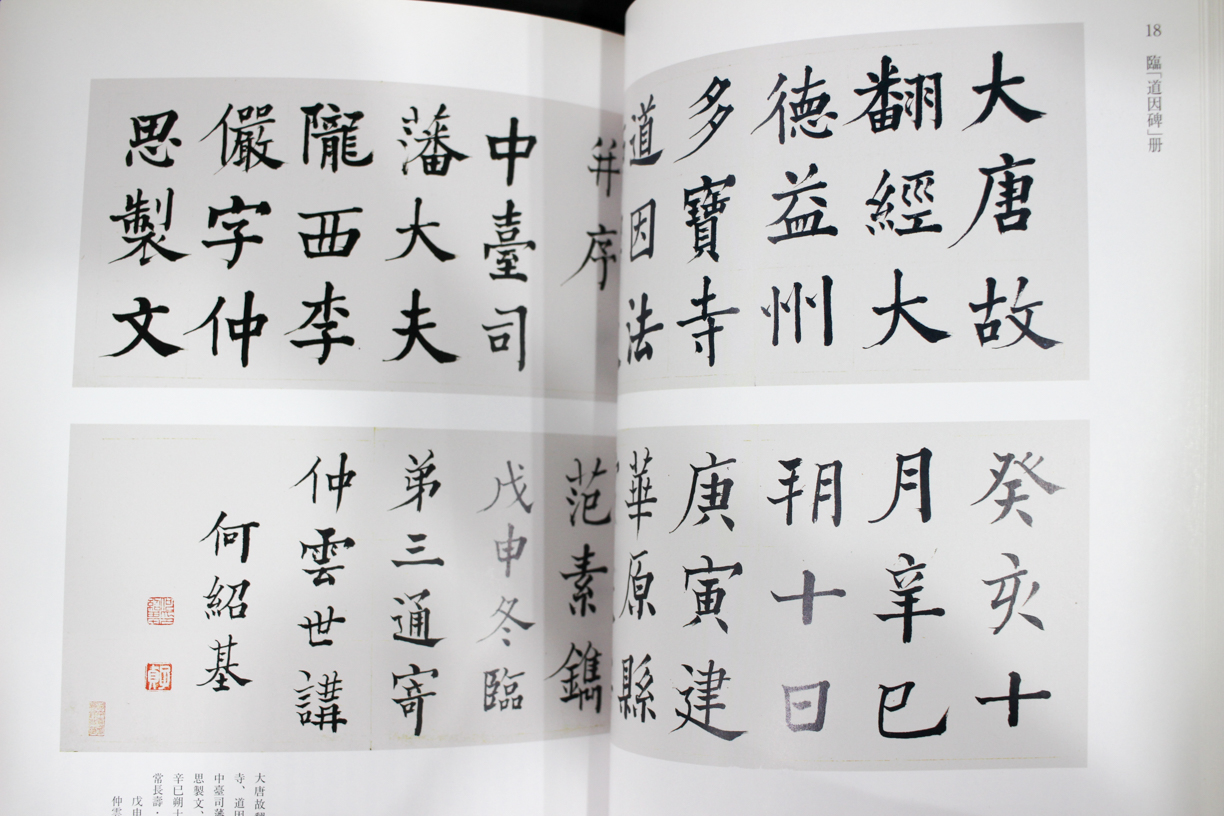 18 臨「道因碑」册
大唐故
翻經大
德益州
多寶寺
道因法
并序
中臺司
藩大夫
隴西李
儼字仲
思製文
癸亥十
月辛巳
朔十日
庚寅建
華原縣
范素鐫
戊申冬臨
弟三通寄
仲雲世講
何紹基
大唐故翻
寺、道因
中臺司藩
思製文、
辛巳朔十
常長壽・
戊申
仲雲